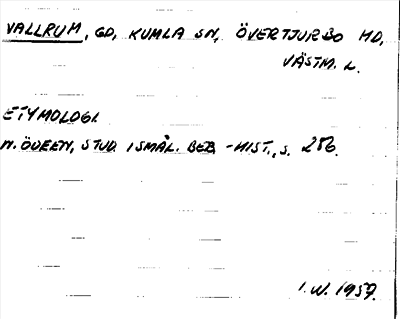 VALLRUM, GD, KUMLA SN, ÖVERTJURBO HD,
VÄSTM. L.
ETYMOLOGI
N. ÖDEEN, STUD. I SMÅL. BEB. -HIST., S. 286.
I.W. 1959.